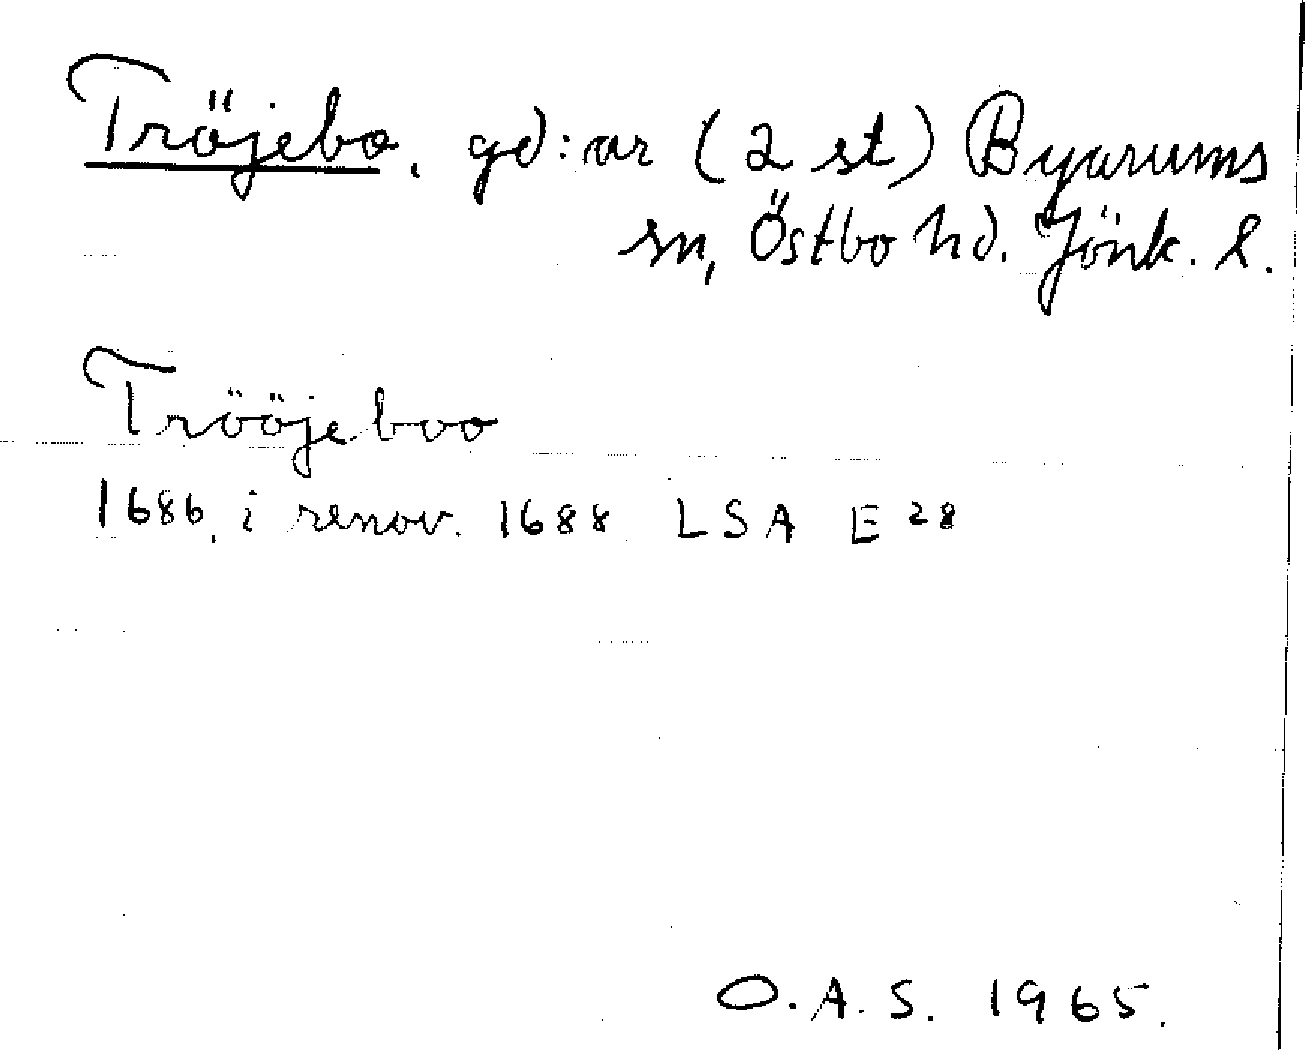 Tröjebo, gd:ar (2 st) Byarums
sn, Östbo hd. Jönk. l.
Trööjeboo
1686, i renov. 1688 LSA E 28
O.A.S. 1965.